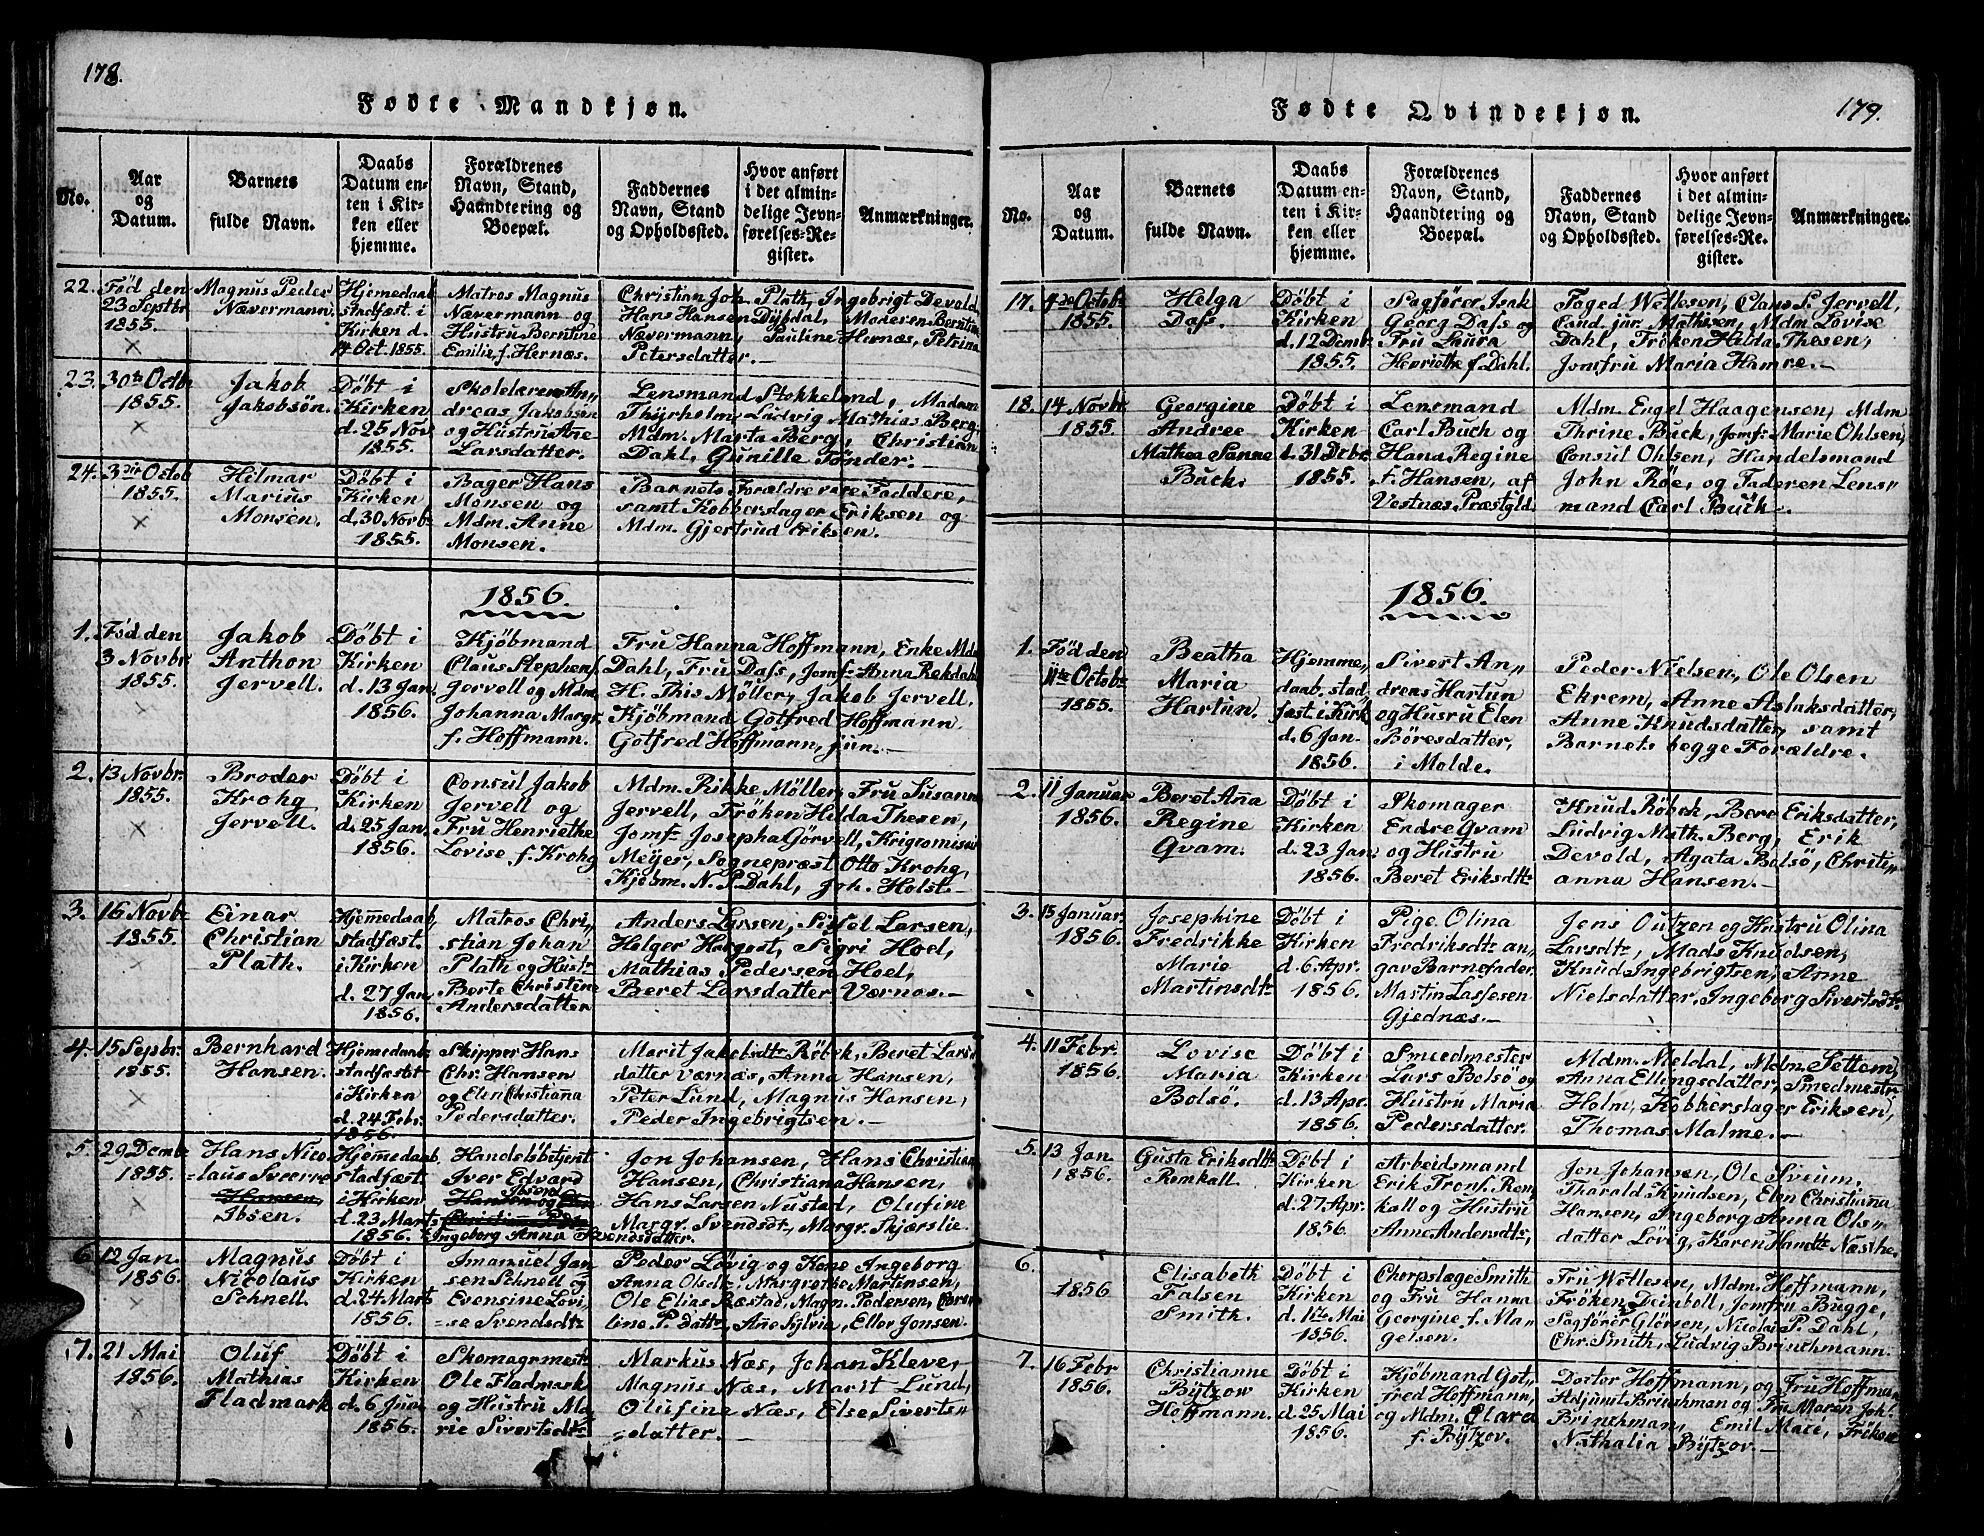 178.
Fødte Mandkjøn.
No.
Aar
og
Datum.
Barnets
fulde Navn.
Daabs
Datum en-
ten i Kir-
ken eller
hjemme.
Forældrenes
Navn, Stand,
Haandtering og
Boepæl.
Faddernes
Navn, Stand
og Opholdssted.
Hvor anført
i det almin-
delige Jevn-
førelses-Re-
gister.
Anmærkninger.
22.
Fød den
23 Septbr
1855.
×
Magnus Peder
Nævermann.
Hjemedaab
stadfæst. i
Kirken d.
14 Oct. 1855.
Matros Magnus
Nævermann og
Hustru Berntine
Emilie, f. Hernæs.
Christian Joh. Plath, Ingebrigt Devold
Hans Hansen Dybdal, Madesen Berntine
Nævermann, Pauline Hernæs, Petrina
Petersdatter.—
23.
30te Octb.
1855.
×
Jakob
Jakobsön.
Döbt i
Kirken
d. 25 Nov
1855.
Skolelæren An„
dreas Jakobsen
og Hustru Ane
Larsdatter.
Lensmand Stokkeland, Madam
Thyrholm, Ludvig Mathias Berg
Mdm. Marta Berg, Christian
Dahl, Gunille Tönder.
24.
3die Octob
1855.
×
Hilmar
Marius
Monsen.
Döbt i
Kirken
d. 30 Novb.
1855.
Bager Hans
Monsen og
Mdm. Anne
Monsen.
Barnets Forældre vare Faddere,
samt Kobberslager Eriksen og
Mdm. Gjertrud Eriksen.
1856.
1.
Fød den
3 Novbr.
1855.
Jakob
Anthon
Jervell.
Döbt i
Kirken
d. 13 Jan.
1856.
Kjöbmand
Claus Stephens.
Jervell og Mdm.
Johanna Margr.
f. Hoffmann.
Fru Hanna Hoffmann, Enke Mdm
Dahl, Fru Dass, Jomf. Anna Rekdahl
H. This Möller, Jakob Jervell.
Kjöbmand Gotfred Hoffmann
Gotfred Hoffmann, jun.—
2.
13 Novbr.
1855.
×
Broder
Krohg
Jervell.
Döbt i
Kirken
d. 25 Jan.
1856.
Consul Jakob
Jervell og
Fru Henriethe
Lovise f. Krohg
Mdm. Rikke Möller, Fru Susanna
Jervell, Fröken Hilda Thesen,
Jomf. Josepha Görvell, Krigscomisair
Meyer, Sognepræst Otto Krohg,
Kjöbm. N. P. Dahl, Joh. Holst.—
3.
16 Novbr
1855.
×
Einar
Christian
Plath.
Hjemedaab
stadfæst.
i Kirken
d. 27 Jan.
1856.
Matros Chri„
stian Johan
Plath og Hustr
Berte Christine
Andersdatter
Anders Larsen, Sissel Larsen,
Holger Hagqvst, Sigri Hoel,
Mathias Pedersen Hoel,
Beret Larsdatter Værnæs.—
4.
15 Sepbr.
1855.
×
Bernhard
Hansen.
Hjemedaab
stadfæst
i Kirken
d. 24 Febr.
1856.
Skipper Hans
Chr. Hansen
og Elen Christiana
Pedersdatter.
Marit Jakobsdtr Röbek, Beret Lars„
datter Værnæs, Anna Hansen,
Peter Lund, Magnus Hansen,
Peder Ingebrigtsen.—
5.
29 Decmbr
1855.
×
Hans Nico
=laus Sverre
Hansen
Ibsen.
Hjemedaab
stadfæst
i Kirken
d. 23 Marts
1856.
Handelsbetjent
Iver Edvard
Ibsen
Hansen og Elen
Christiana Peder
Ingeborg Anna Svendsdatter.
Jon Johansen, Hans Christian
Hansen, Christiana Hansen,
Hans Larsen Nustad, Olufine
Margr. Svendsdt., Margr. Skjærslie.
6.
12 Jan.
1856.
×
Magnus
Nicolaus
Schnell.
Döbt i
Kirken
d. 24 Marts
1856.
Imanuel Jan
sen Schnell og
Evensine Lovi„
=se Svendsdtr
Peder Lövig og Kone Ingeborg
Anna Olsdt., Margrethe Martinsen,
Ole Elias Ræstad, Magn. Pedersen, Caro
line P.dattr, Ane Sylvia, Ellor Jonsen.
7.
21 Mai
1856.
Oluf
Mathias
Fladmark
Döbt i
Kirken
d. 6 Juni
1856.
Skomagrmestr
Ole Fladmark
og Hustru Ma
rie Sivertsdtr
Markus Næs, Johan Kleve,
Magnus Næs, Marit Lund,
Olufine Næs, Else Siverts„
=datter.
179.
Fødte Qvindekjøn.
No.
Aar
og
Datum.
Barnets
fulde Navn.
Daabs
Datum en-
ten i Kir-
ken eller
hjemme.
Forældrenes
Navn, Stand,
Haandtering og
Boepæl.
Faddernes
Navn, Stand
og Opholdssted.
Hvor anført
i det almin-
delige Jevn-
førelses-Re-
gister.
Anmærkninger.
17.
4de Octobr
1855.
Helga
Dass.
Döbt i
Kirken
d. 12 Dembr
1855.
Sagförer Isak
Georg Dass og
Fru Laura
Henriette f. Dahl.
Foged Wellesen, Claus S. Jervell,
Cand. jur. Mathisen, Mdm Lovise
Dahl, Fröken Hilda Thesen,
Jomfru Maria Hamre.—
18.
14 Novbr
1855.
Georgine
Andree
Mathea Sanne
Buck.
Döbt i
Kirken
d. 31 Decbr.
1855.
Lensmand
Carl Buch og
Hana Regine
f. Hansen, af
Vestnæs Præstgld.
Mdm. Engel Haagensen, Mdm
Thrine Buck, Jomf. Marie Ohlsen,
Consul Ohlsen, Handelsmand
John Röe, og Faderen Lens„
mand Carl Büch.
1856.
1.
Fød den
11te Octobr
1855.
Beatha
Maria
Hartun.
Hjemme,
daab. stad,
fæst. i Kirk.
d. 6 Jan.
1856.
Sivert An„
dreas Hartun
og Husru Elen
Böresdatter,
i Molde.
Peder Nielsen, Ole Olsen
Ekrem, Anne Aslaksdatter,
Anne Knudsdatter, samt
Barnets begge Forældre.
2.
11 Januar
1856.
Beret Ana
Regine
Qvam.
Döbt i
Kirken
d. 23 Jan
1856.
Skomager
Endre Qvam
og Hustru
Beret Eriksdtr
Knud Röbek, Bere Eriksdatter,
Ludvig Math. Berg, Erik
Devold, Agata Bolsö, Christi„
anna Hansen.—
3.
15 Januar.
1856.
Josephine
Fredrikke
Marie
Martinsdtr
Döbt i
Kirken
d. 6 Apr.
1856.
Pige Olina
Fredriksdtr an,
gav Barnefader
Martin Lassesen
Gjednæs.—
Jens Outzen og Hustru Olina
Larsdtr, Mads Knudsen,
Knud Ingebrigtsen, Anne
Nielsdatter, Ingeborg Sivertsdtr
4.
11 Febr.
1856.
Lovise
Maria
Bolsö.
Döbt i
Kirken
d. 13 Apr.
1856.
Smedmester
Lars Bolsö og
Hustru Maria
Pedersdatter.
Mdm. Meldal, Mdm. Settem,
Anna Ellingsdatter, Smedmester
Holm, Kobberslager Eriksen,
Thomas Malme.—
5.
13 Jan
1856.
Gusta Eriksdtr
Remkall.
Döbt i
Kirken
d. 27 Apr.
1856.
Arbeidsmand
Erik Trons. Rem
kall og Hustru
Anne Andersdtr,
Jon Johansen, Ole Sveum,
Tharald Knudsen, Elen Christiana
Hansen, Ingeborg Anna Ols„
datter Lövig, Karen Hansdtr Næsthe,
6.
1856
Elisabeth
Falsen
Smith.
Döbt i
Kirken
d. 1ste Mai
1856.
Chorpslæge Smith
og Fru Hanna
Georgine f. Ma„
gelsen.
Fru Wellesen, Mdm. Hoffmann,
Fröken Deinboll, Jomfru Bugge,
Sagförer Glörsen, Nicolai P. Dahl,
Chr. Smith, Ludvig Brinchmann.
7.
16 Febr
1856.
Christianne
Bytzow
Hoffmann.
Döbt i
Kirken
d. 25 Mai
1856.
Kjöbmand Got„
fred Hoffmann,
og Mdm. Clara
f. Bytzov.
Doctor Hoffmann, og Fru Hoffmann
Adjunct Brinchman og Fru Maren Joh.
Brinchman, Emil Mace, Fröken
Nathalia Bytzov.—